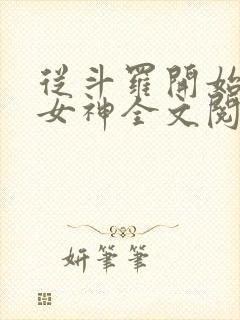 從斗羅開始
女神全文閱
妍筆筆